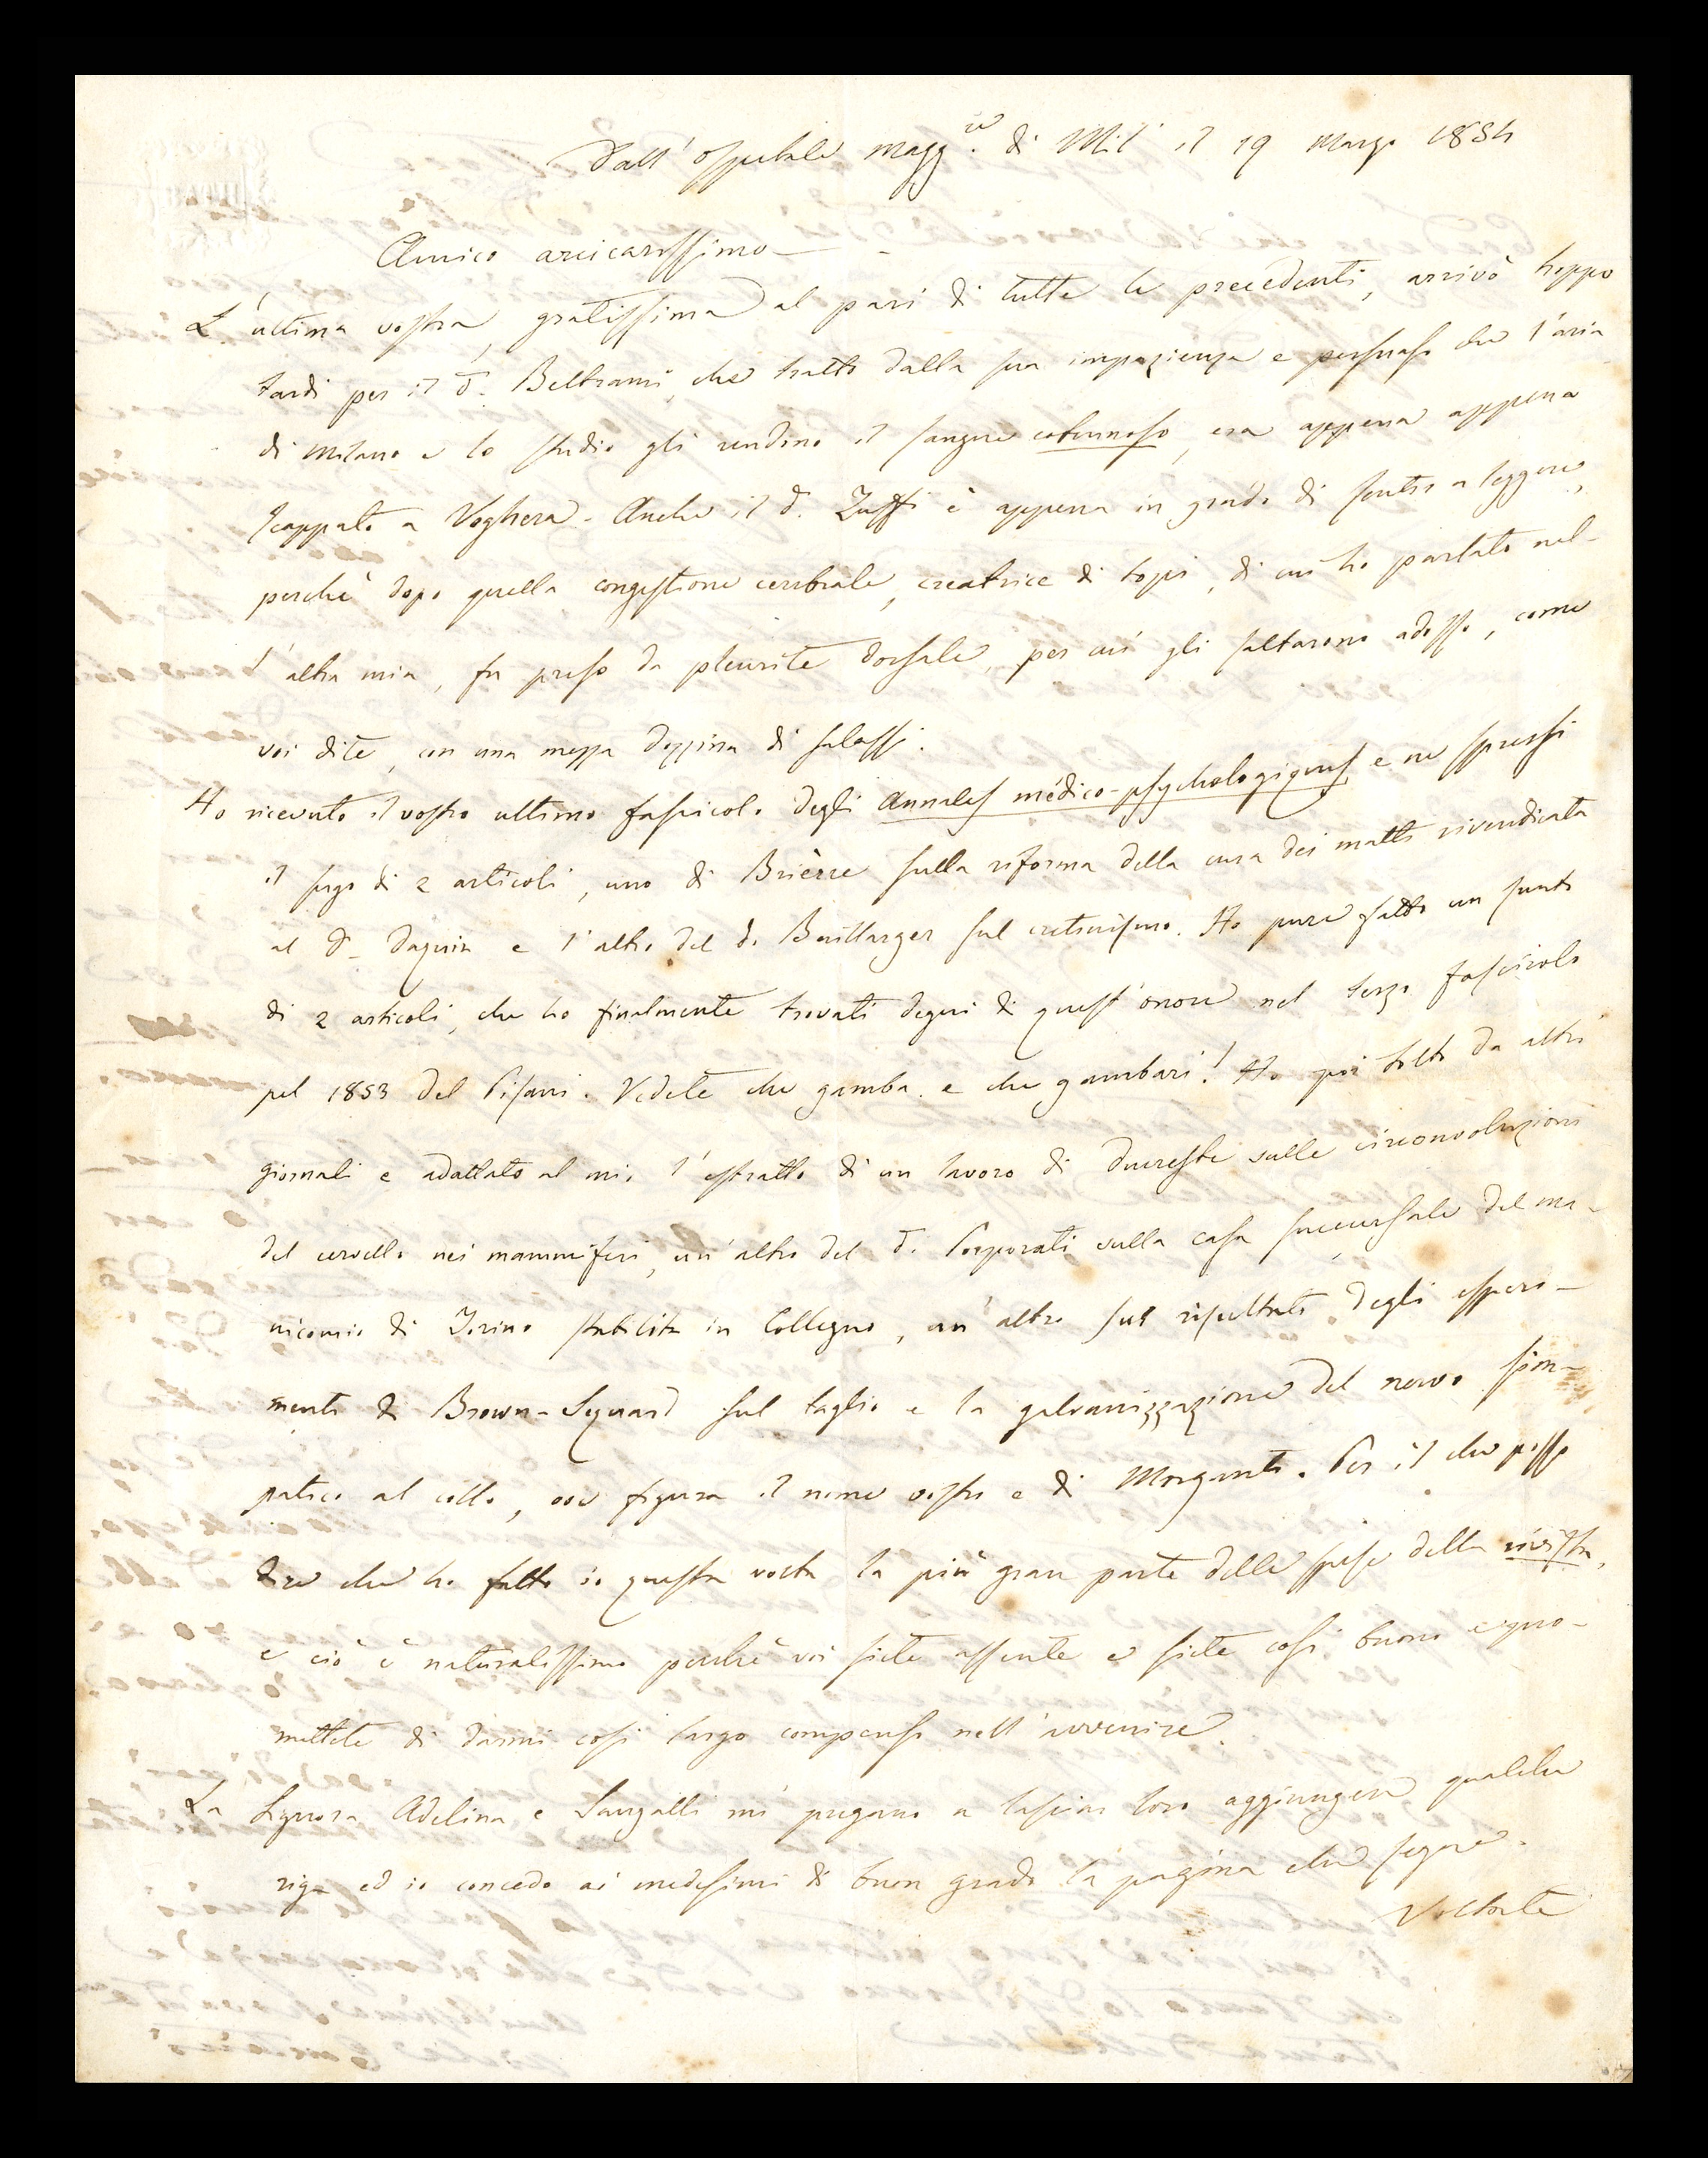 Dall'ospitale magg.re di Mil° il 19 Marzo 1854
Amico arcicarissimo —
L'ultima vostra, gratissima al pari di tutte le precedenti, arrivò troppo
tardi per il d. Beltrami, che tratto dalla sua impazienza e persuaso che l'aria
di Milano e lo studio gli rendino il sangue cotennoso, era appena appena
scappato a Voghera. Anche il d. Zuffi è appena in grado di sentir a leggere,
perchè dopo quella congestione cerebrale, creatrice di topi, di cui ho parlato nel-
l'altra mia, fu preso da pleurite dorsale, per cui gli saltarono adosso, come
voi dite, con una mezza dozzina di salassi.
Ho ricevuto il vostro ultimo fascicolo degli Annales médico-psychologiques e ne spressi
il sugo di 2 articoli, uno di Brièrre sulla riforma della cura dei matti rivendicata
al d. Daquin e l'altro del d. Baillarger sul cretinismo. Ho pure fatto un sunto
di 2 articoli, che ho finalmente trovati degni di quest'onore nel terzo fascicolo
pel 1853 del Pisani. Vedete che gamba e che gambari! Ho poi tolto da altri
giornali e adattato al mio l'estratto di un lavoro di Dareste sulle circonvoluzioni
del cervello nei mammiferi, un'altro del d. Porporati sulla casa succursale del ma-
nicomio di Torino stabilita in Collegno, un'altro sui risultati degli esperi-
menti di Brown-Sequard sul taglio e la galvanizzazione del nervo sim-
patico al collo, ove figura il nome vostro e di Morganti. Per il che posso
dire che ho fatto io questa volta la più gran parte delle spese della rivista,
e ciò è naturalissimo perchè voi siete assente e siete così buono e pro-
mettete di darmi così largo compenso nell'avvenire.
La Signora Adelina e Sangalli mi pregano a lasciar loro aggiungere qualche
riga ed io concedo ai medesimi di buon grado la pagina che segue.
Voltate